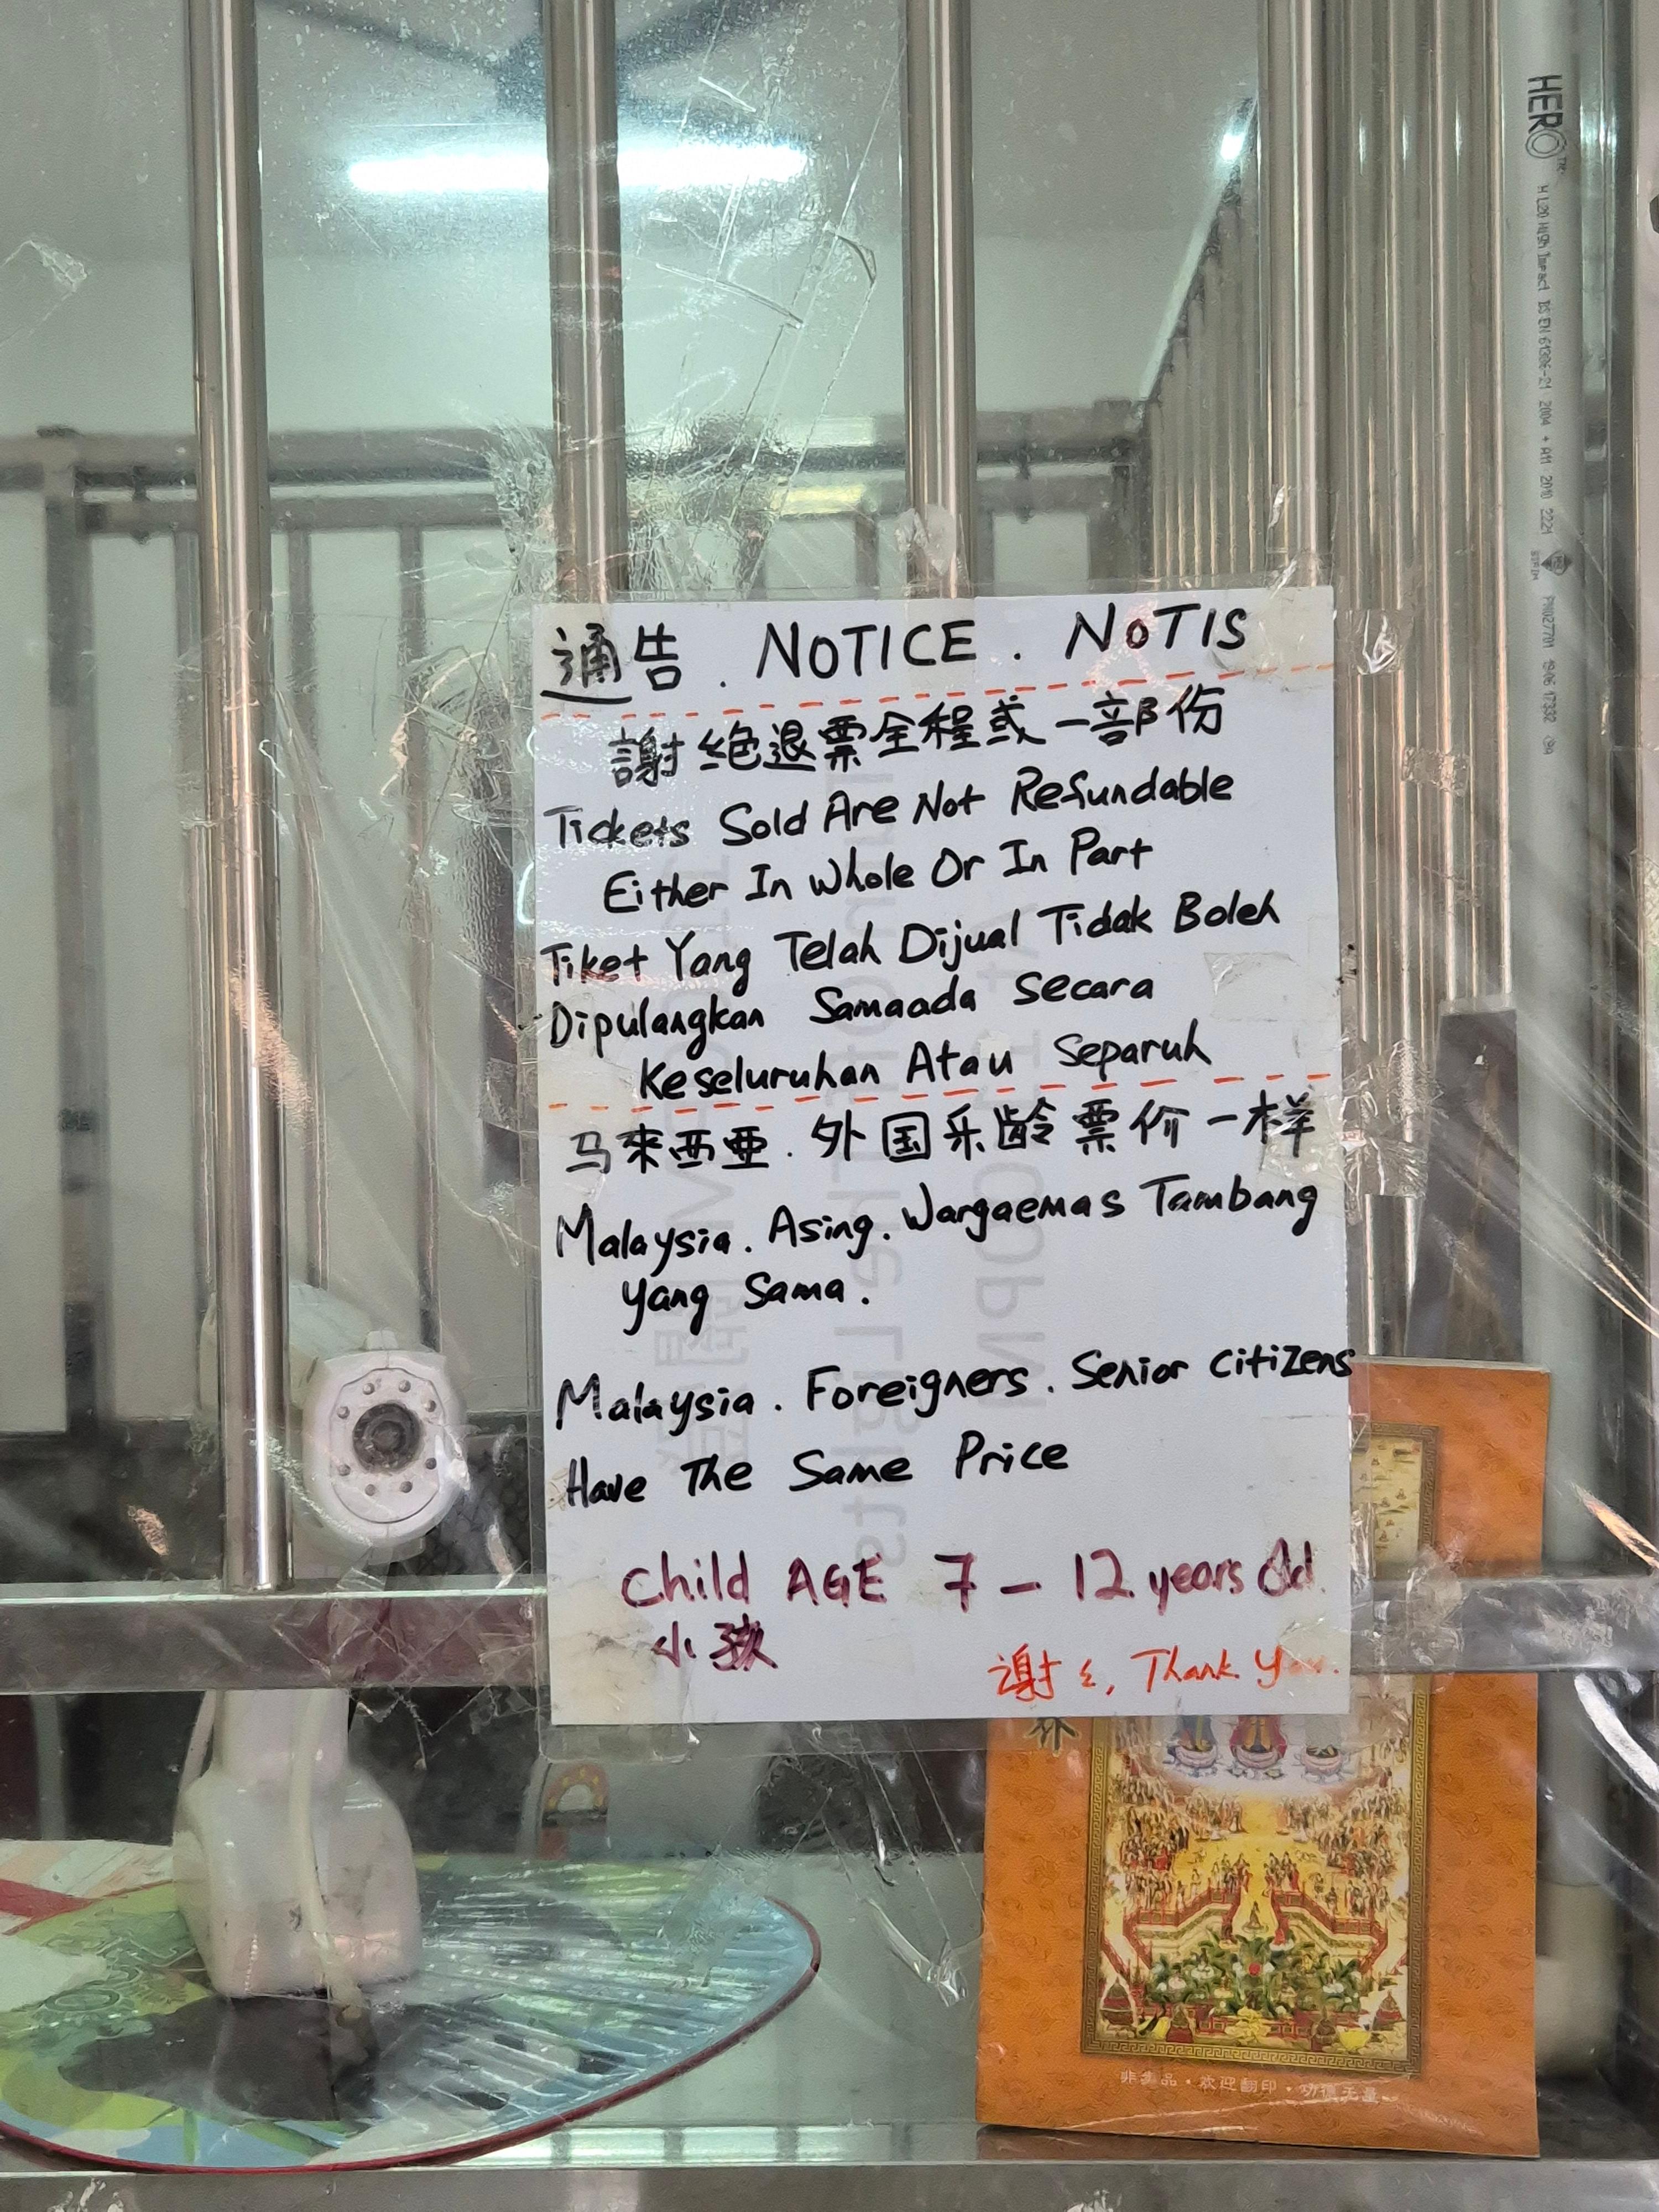 通告 . NOTICE . NOTIS
謝絶退票全程或一部份
Tickets Sold Are Not Refundable
Either In Whole Or In Part
Tiket Yang Telah Dijual Tidak Boleh
Dipulangkan Samaada Secara
Keseluruhan Atau Separuh
马來西亜 . 外国乐齡票价一样
Malaysia . Asing . Wargaemas Tambang
Yang Sama .
Malaysia . Foreigners . Senior Citizens
Have The Same Price
Child AGE 7 - 12 years Old
小孩
謝々, Thank You.
HERO™ H L20 High Impact BS EN 61386-21 2004 + A11 2010 2221
非卖品・欢迎翻印・功德无量